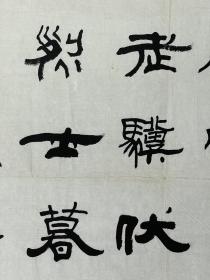 老驥伏
烈士暮